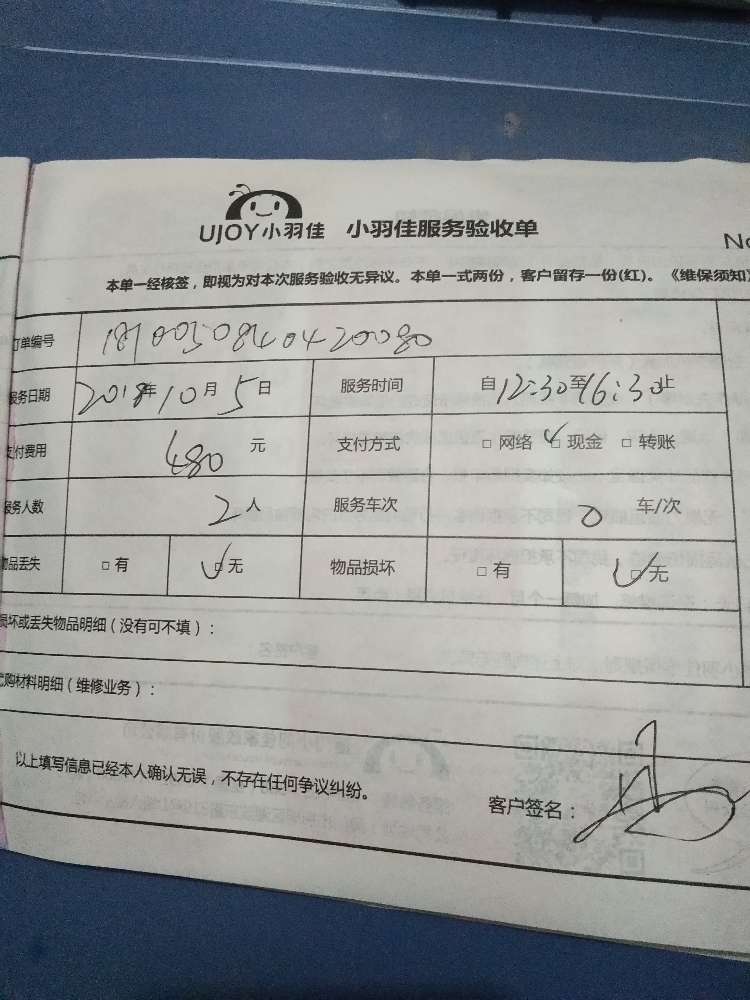 UJOY小羽佳 小羽佳服务验收单
No
本单一经核签，即视为对本次服务验收无异议。本单一式两份，客户留存一份(红)。《维保须知》
订单编号 18100508404420080
服务日期 2018年10月5日 服务时间 自12:30至16:30止
支付费用 480元 支付方式 □网络 ☑现金 □转账
服务人数 2人 服务车次 0车/次
物品丢失 □有 ☑无 物品损坏 □有 ☑无
损坏或丢失物品明细（没有可不填）：
代购材料明细（维修业务）：
以上填写信息已经本人确认无误，不存在任何争议纠纷。
客户签名：